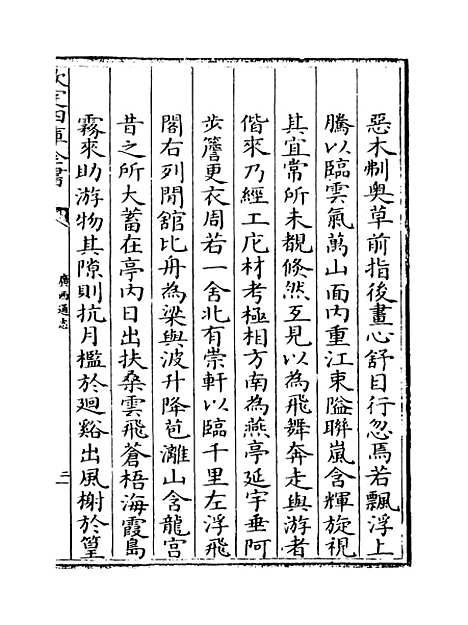 惡木刜奥草前指後畫心舒目行忽焉若飄浮上
騰以臨雲氣萬山面内重江束隘聯嵐含輝旋視
其宜常所未覩倐然互見以為飛舞奔走與游者
偕來乃經工庀材考極相方南為燕亭延宇垂阿
步簷更衣周若一舍北有崇軒以臨千里左浮飛
閣右列閒舘比舟為梁與波升降苞漓山含龍宫
昔之所大蓄在亭内日出扶桑雲飛蒼梧海霞島
霧來助游物其隙則抗月檻於廻谿出風榭於篁
欽定四庫全書
廣西通志